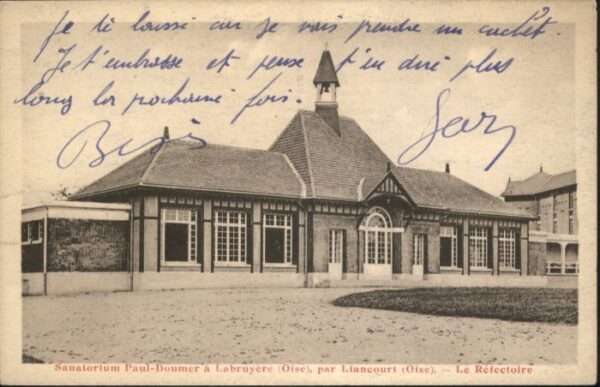 je te laisse car je vais prendre un cachet.
Je t'embrasse et pense t'en dire plus
long la prochaine fois.
Bises
Jean
Sanatorium Paul-Doumer à Labruyère (Oise), par Liancourt (Oise). – Le Réfectoire